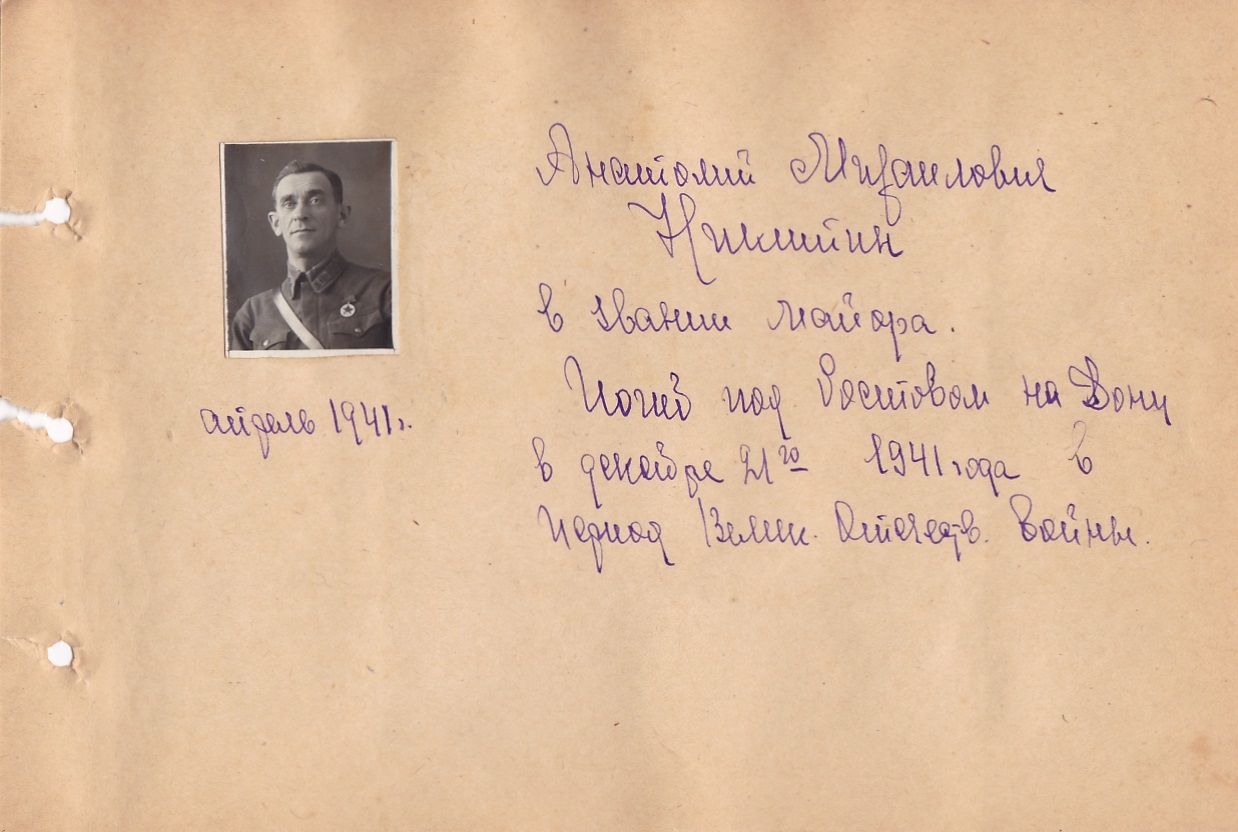 Анатолий Михайлович
Никитин
в звании майора.
Погиб под Ростовом на Дону
в декабре 21го 1941 года в
период Велик. Отечеств. Войны.
апрель 1941г.